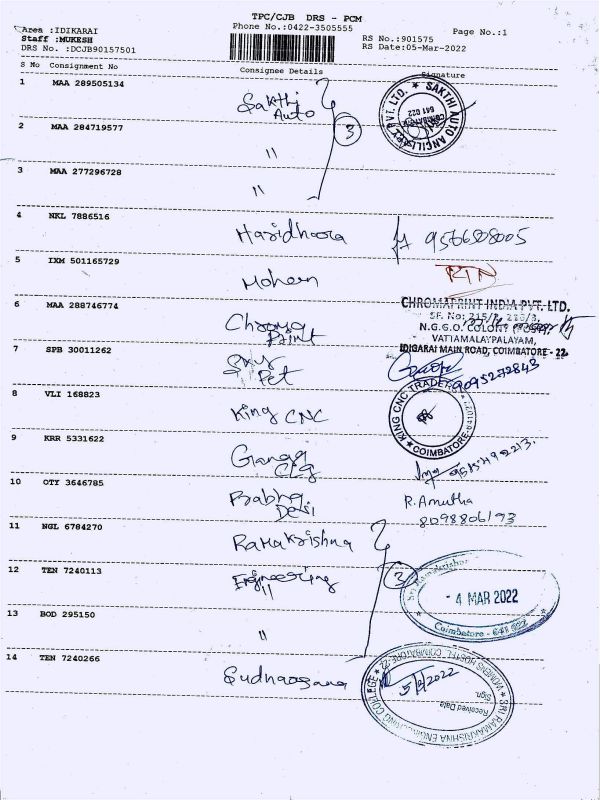 TPC/CJB DRS - PCM
Area :IDIKARAI
Phone No.:0422-3505555
Page No.:1
Staff :MUKESH
RS No.:901575
DRS No. :DCJB90157501
RS Date:05-Mar-2022
S No Consignment No Consignee Details Signature
1 MAA 289505134 Sakthi Auto
3
SAKTHI AUTO ANCILLARY PVT LTD. COIMBATORE 641 022
2 MAA 284719577 "
3 MAA 277296728 "
4 NKL 7886516 9566508005
5 IXM 501165729 Mohern
6 MAA 288746774 Chroma Print
CHROMAPRINT INDIA PVT. LTD.
SF. No: 215/2, 216/3,
N.G.G.O. COLONY (POST)
VATTAMALAYPALAYAM,
IDIGARAI MAIN ROAD, COIMBATORE - 22
7 SPB 30011262 Sky Pet 9095272843
8 VLI 168823 King CNC
KING CNC TRADE COIMBATORE
9 KRR 5331622 Ganga
10 OTY 3646785 Prabha Devi R. Amutha
8098806193
11 NGL 6784270 Ramakrishna
12 TEN 7240113 Engineering "
3
Sri Ramakrishna
- 4 MAR 2022
Coimbatore - 641 022
13 BOD 295150 "
14 TEN 7240266
SRI RAMAKRISHNA ENGINEERING COLLEGE WOMENS HOSTEL, COIMBATORE-22
5/3/2022
Sign.
Received Date